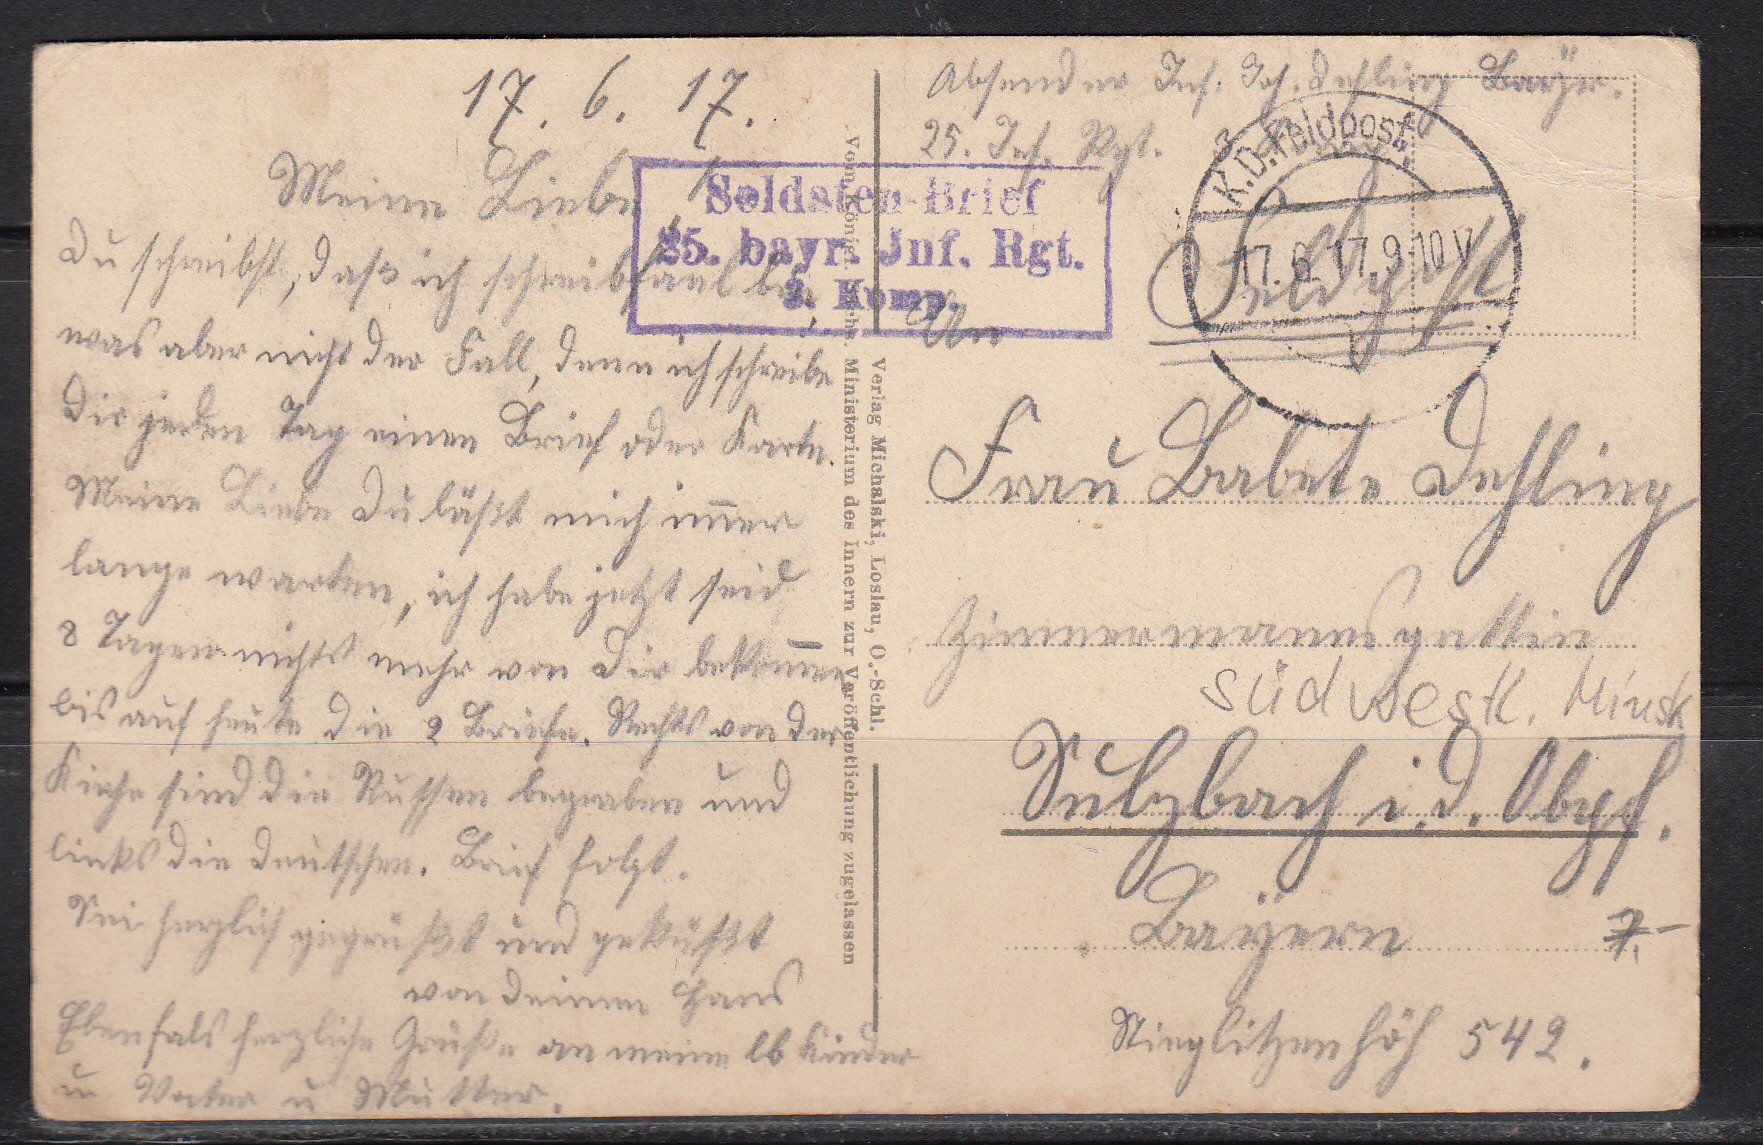 17. 6. 17.
Meine Liebe!
Du schreibst, daß ich schreibfaul bin,
was aber nicht der Fall, denn ich schreibe
Dir jeden Tag einen Brief oder Karte.
Meine Liebe Du läßt mich im̅er
lange warten, ich habe jetzt seid
8 Tagen nichts mehr von Dir bekom̅en
bis auf heute die 2 Briefe. Rechts von der
Kirche sind die Russen begraben und
links die Deutschen. Brief folgt.
Sei herzlich gegrüßt und geküßt
von deinem Hans
Ebenfals herzliche Grüße an meine lb Kinder
u Vater u Mutter.
Soldaten-Brief
25. bayr. Inf. Rgt.
3. Komp.
Vom Königl. Sächs. Ministerium des Innern zur Veröffentlichung zugelassen
Verlag Michalski, Loslau, O.-Schl.
Absender Inf. Joh. Dehling Bayr.
25. Inf. Rgt. 3.
K.D. Feldpost
17. 6. 17. 9-10 V
Feldpost
An
Frau Babete Dehling
Zimmermannsgattin
südwestl. Minsk
Sulzbach i. d. Obpf.
Bayern
7.-
Stieglitzenhöh 542.